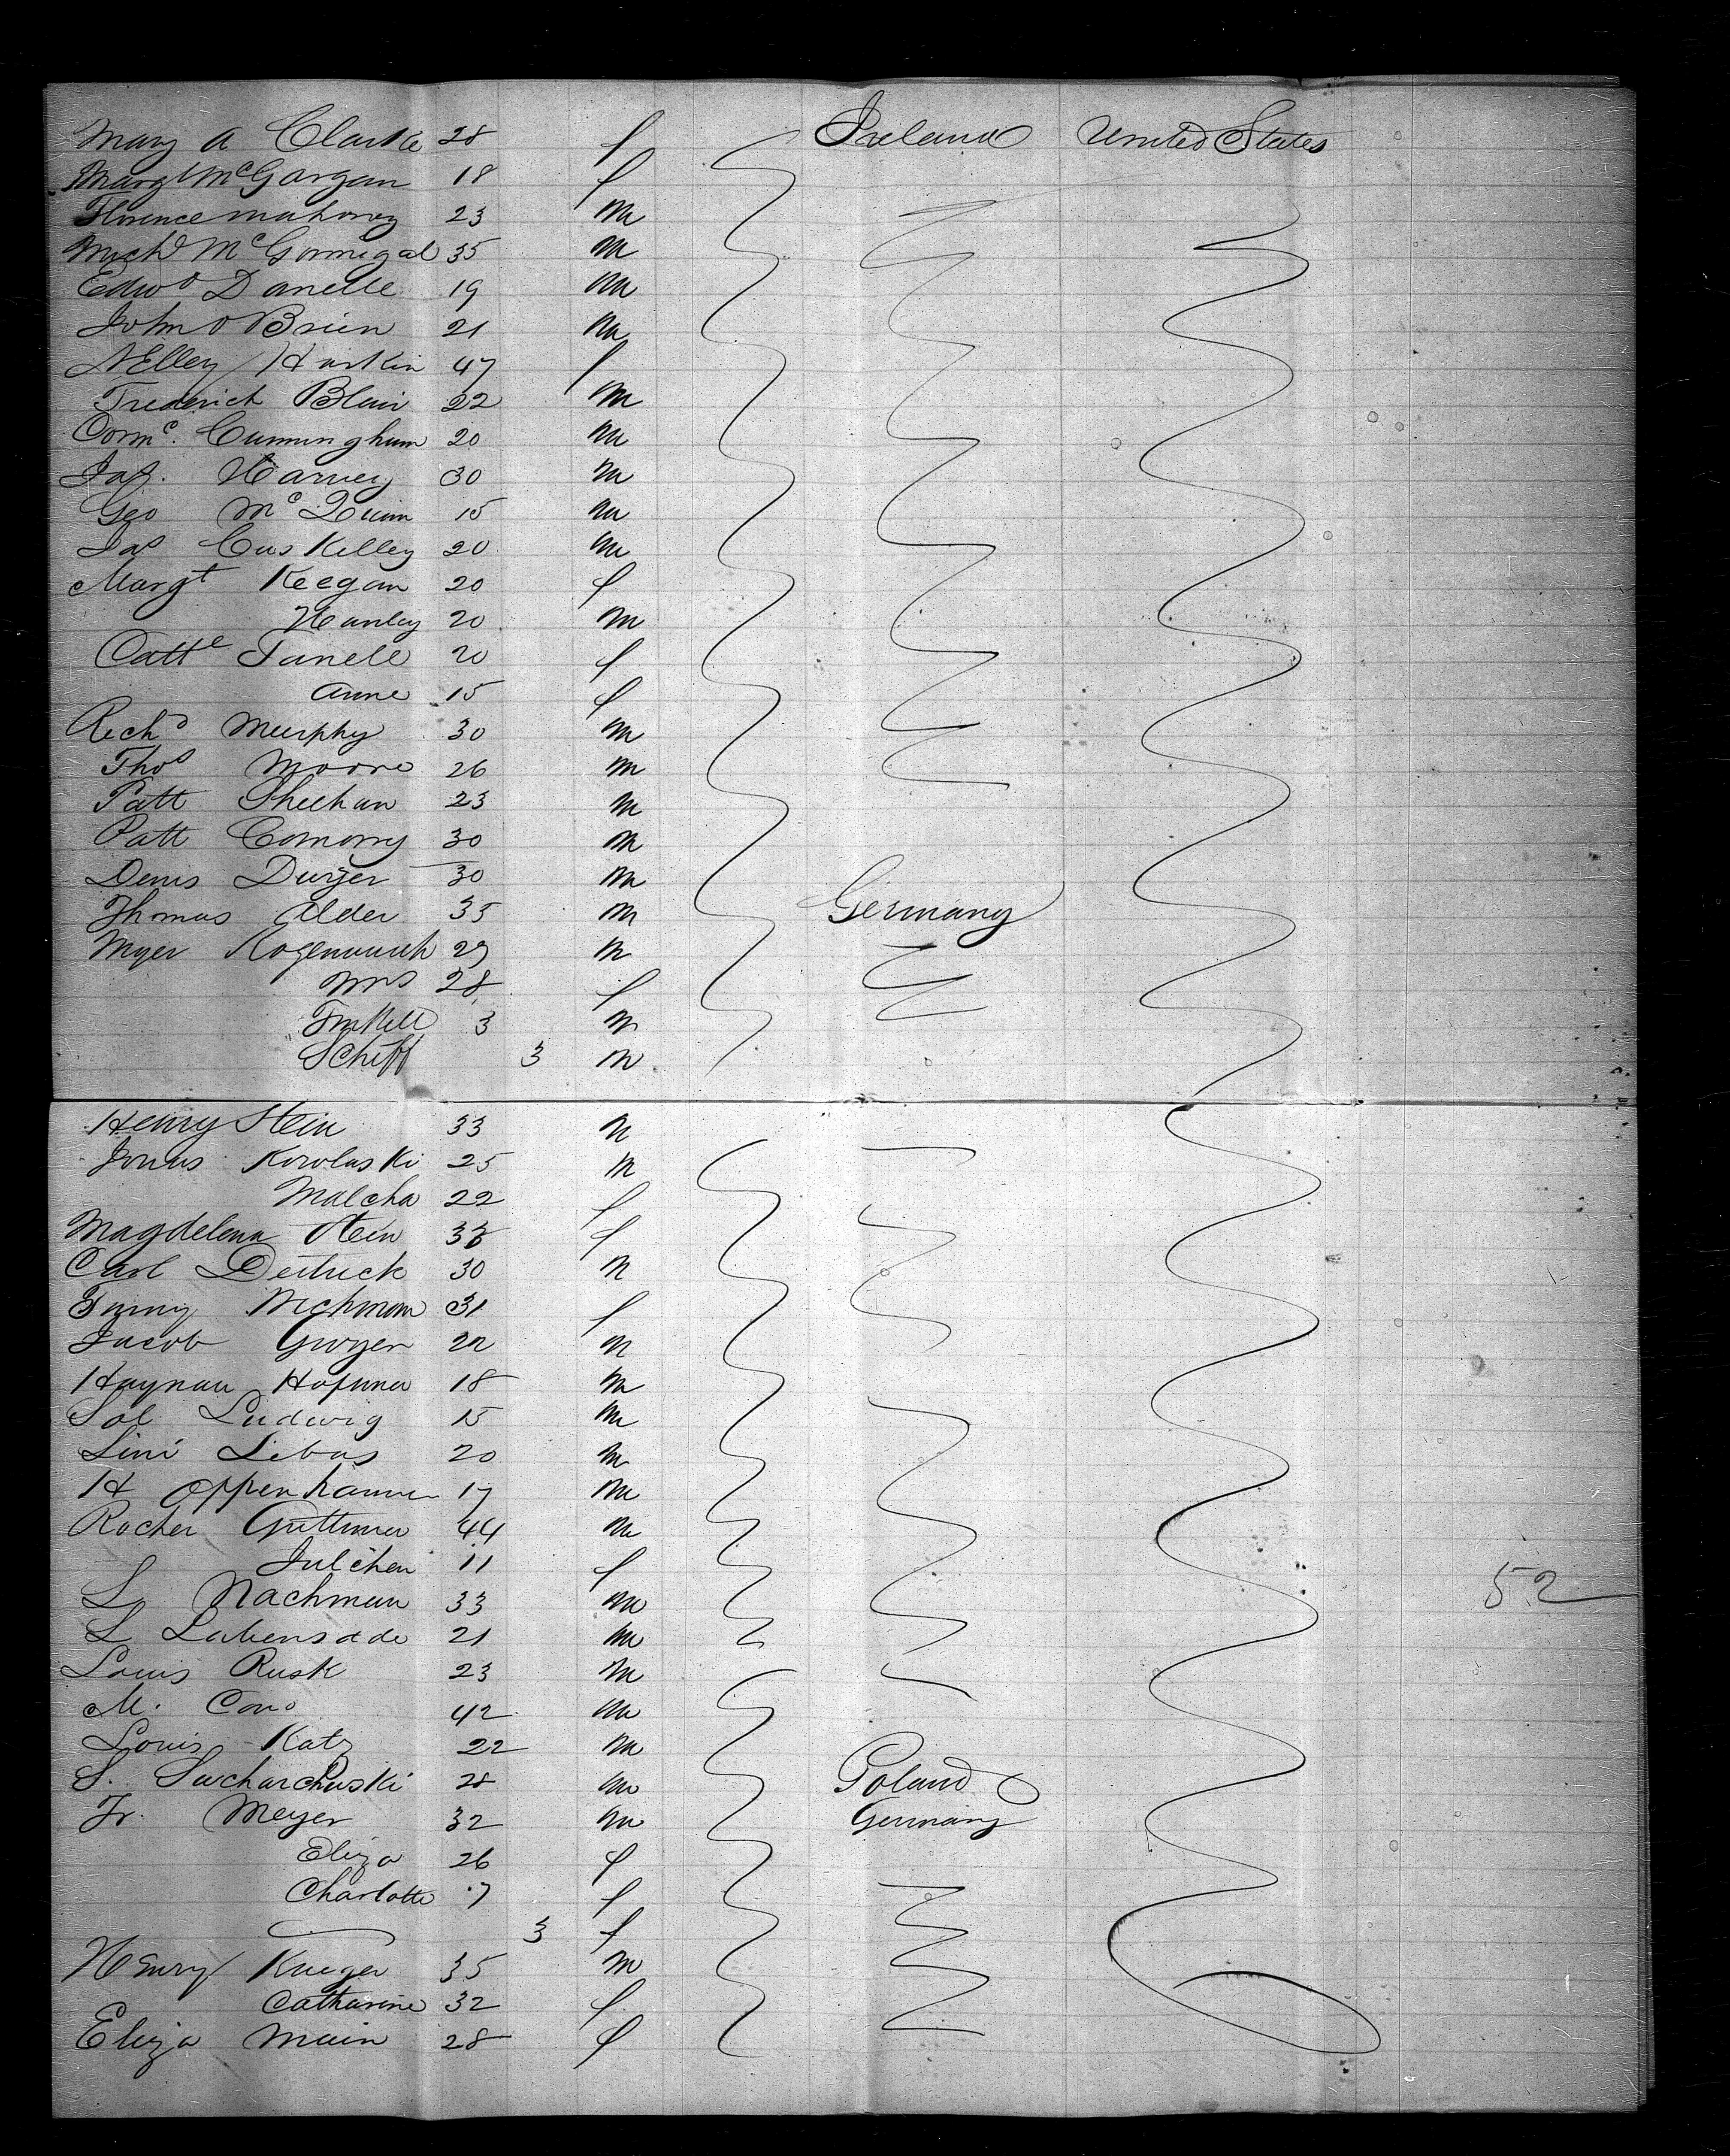 Mary A Clarke 28 f Ireland United States
Margt McGargan 18 f
Florence Mahoney 23 m
Michd McGonnigal 35 m
Edwd Danelle 19 m
John O Brien 21 m
Nelley Harkin 47 f
Frederick Blair 22 m
Cormc. Cunningham 20 m
Jas. Harvey 30 m
Geo McQuinn 15 m
Jas Cuskelley 20 m
Margt Keegan 20 f
Hanley 20 m
Cathe Janell 20 f
Anne 15 f
Richd Murphy 30 m
Thos Moore 26 m
Patt Sheehan 23 m
Patt Comorry 30 m
Denis Dwyer 30 m
Thomas Alder 35 m Germany
Myer 29 m
Mrs 28 f
3 m
Schiff 3 m
Henry Stein 33 m
Jonas Korolaski 25 m
Malcha 22 f
Magdelena Stein 33 f
Carl Deitrick 30 m
Fanny 31 f
Jacob Gwyer 22 m
Haynau 18 m
Sol Ludwig 15 m
Libas 20 m
H Oppenhaumer 17 m
Rocher Guttman 44 m
Julchen 11 f
L Nachman 33 m
L 21 m
Louis Rusk 23 m
M. 42 m
Louis Katz 22 m
S. Sacharchuski 28 m Poland
Fr. Meyer 32 m Germany
Eliza 26 f
Charlotte 7 f
3 f
Henry Krieger 35 m
Catharine 32 f
Eliza Main 28 f
52